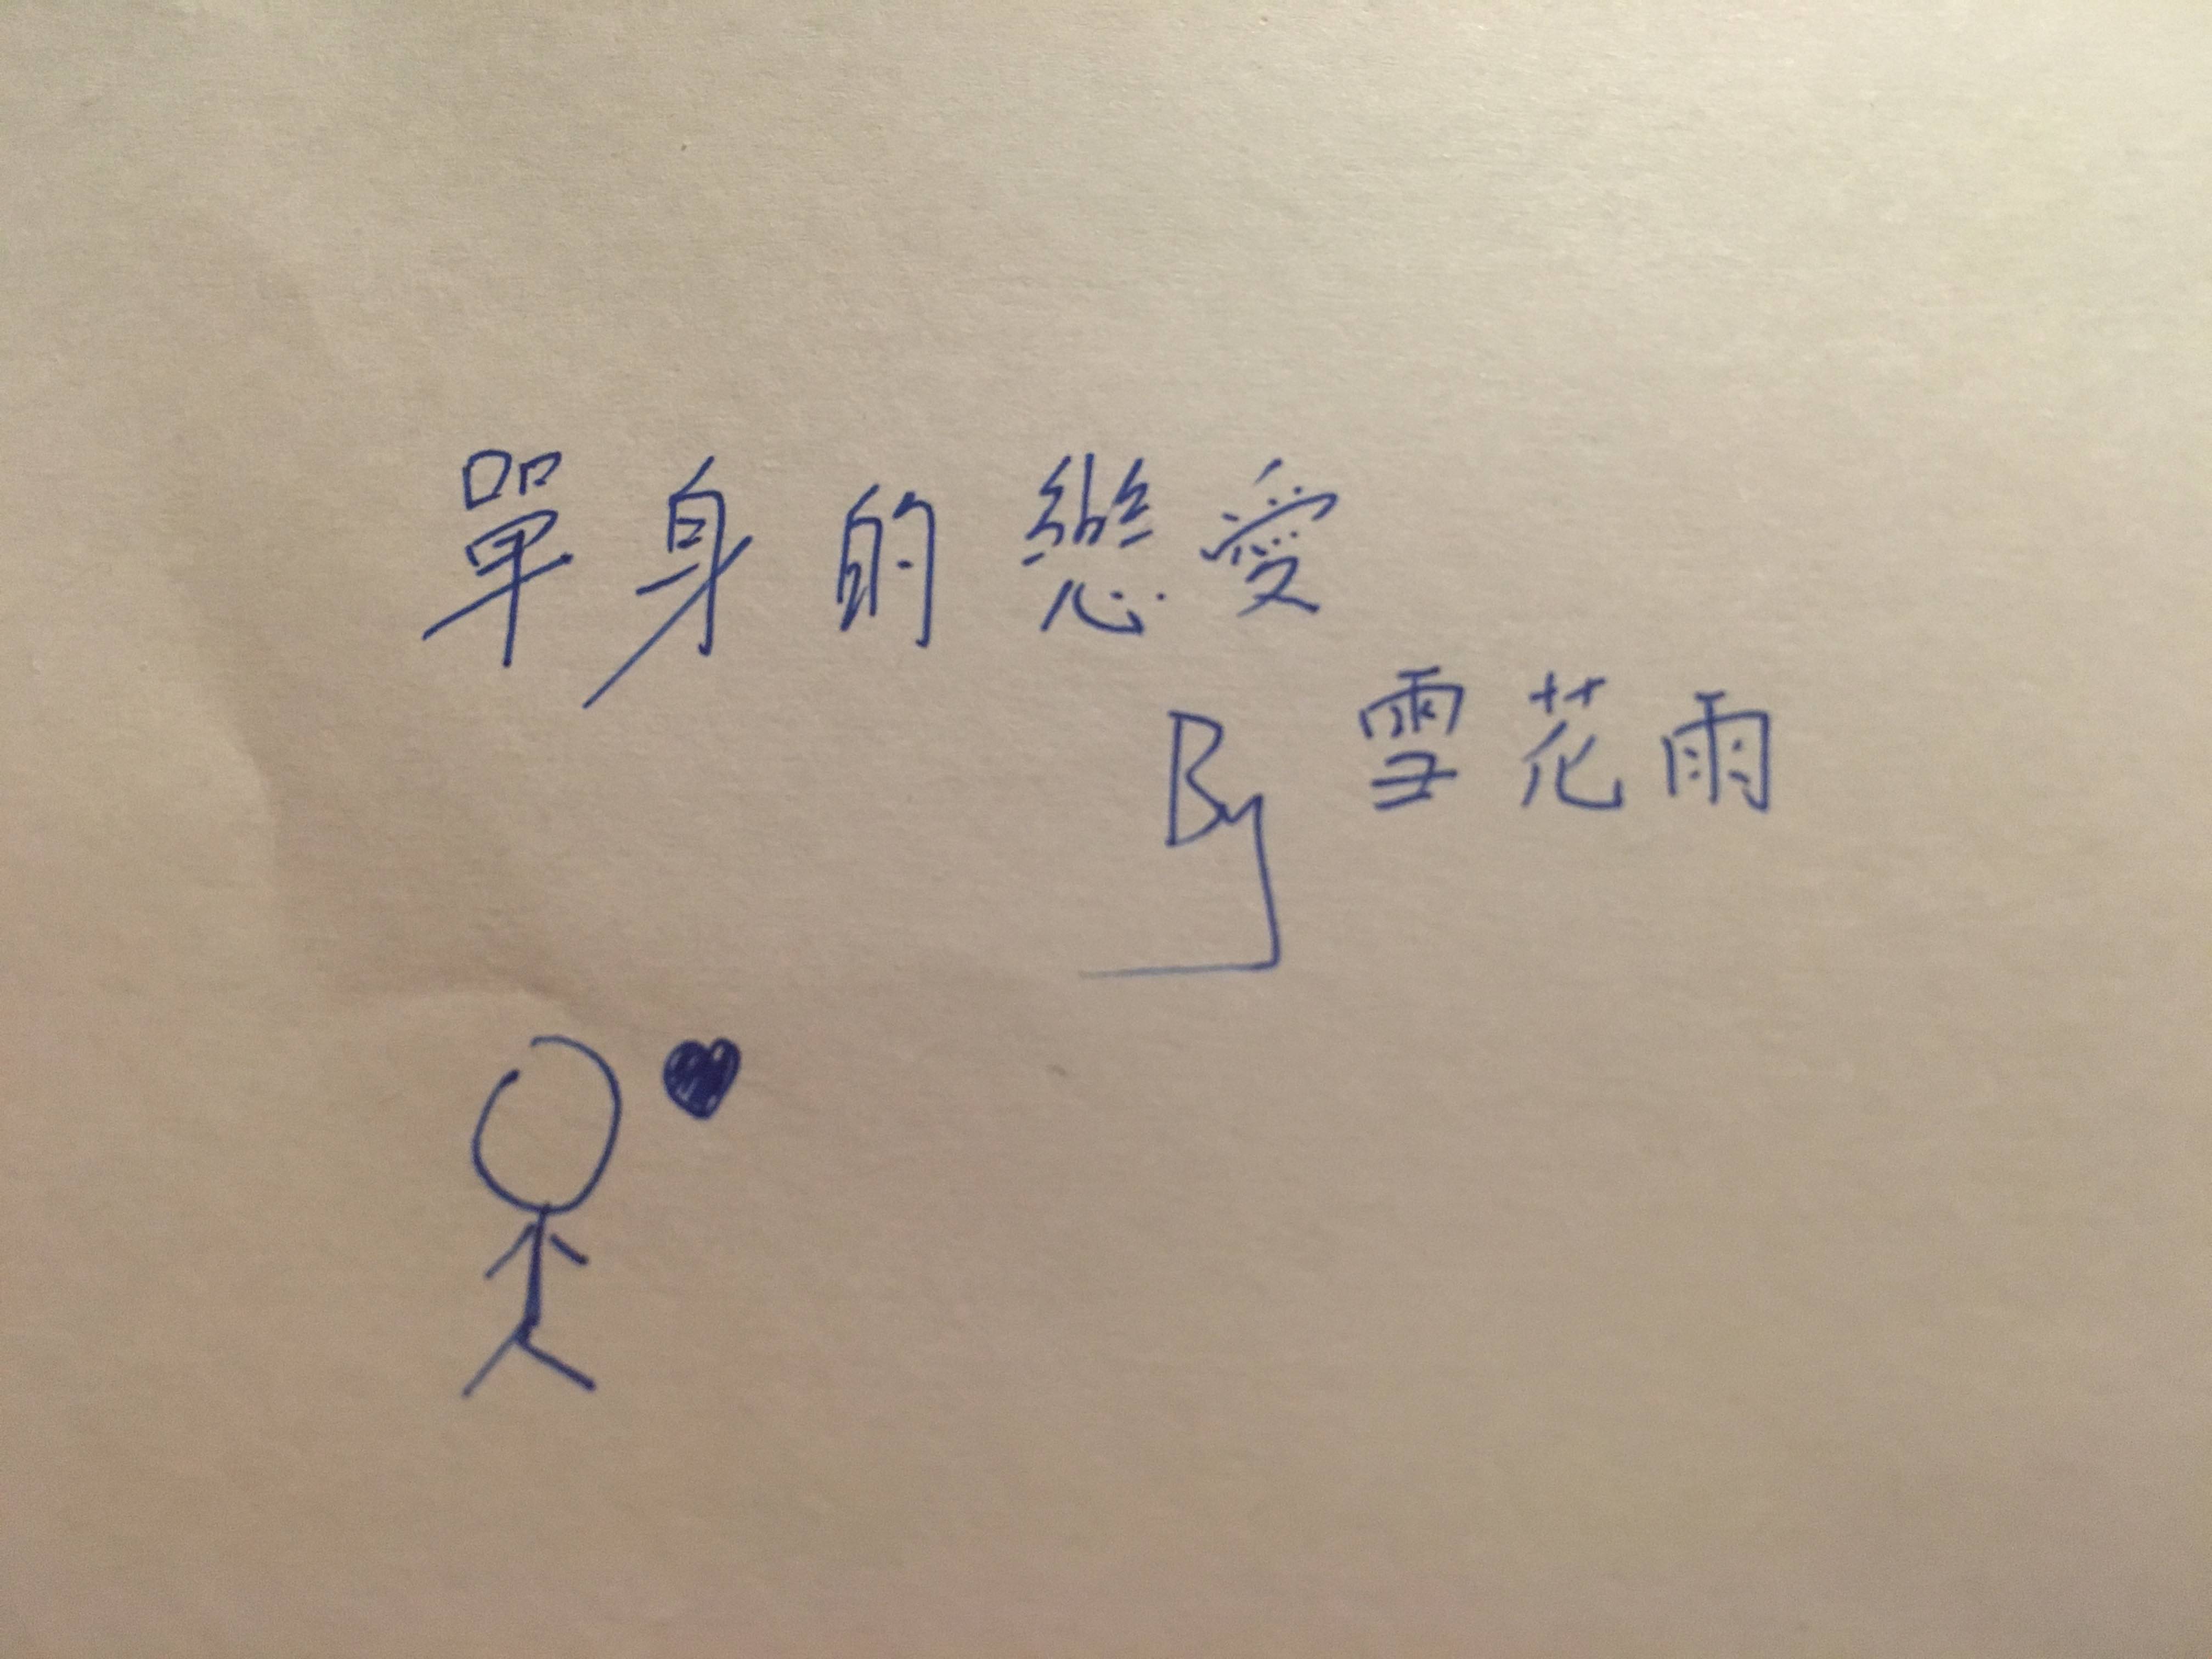 單身的戀愛
By 雪花雨